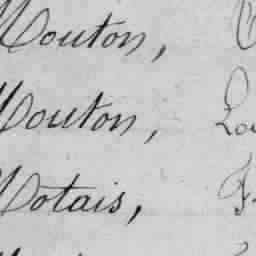 Mouton,
Mouton, Lou
Notais, F.